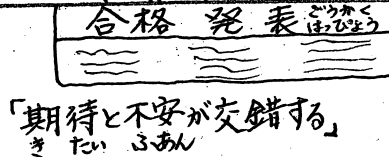 合格発表
ごうかく
はっぴょう
「期待と不安が交錯する」
きたい ふあん